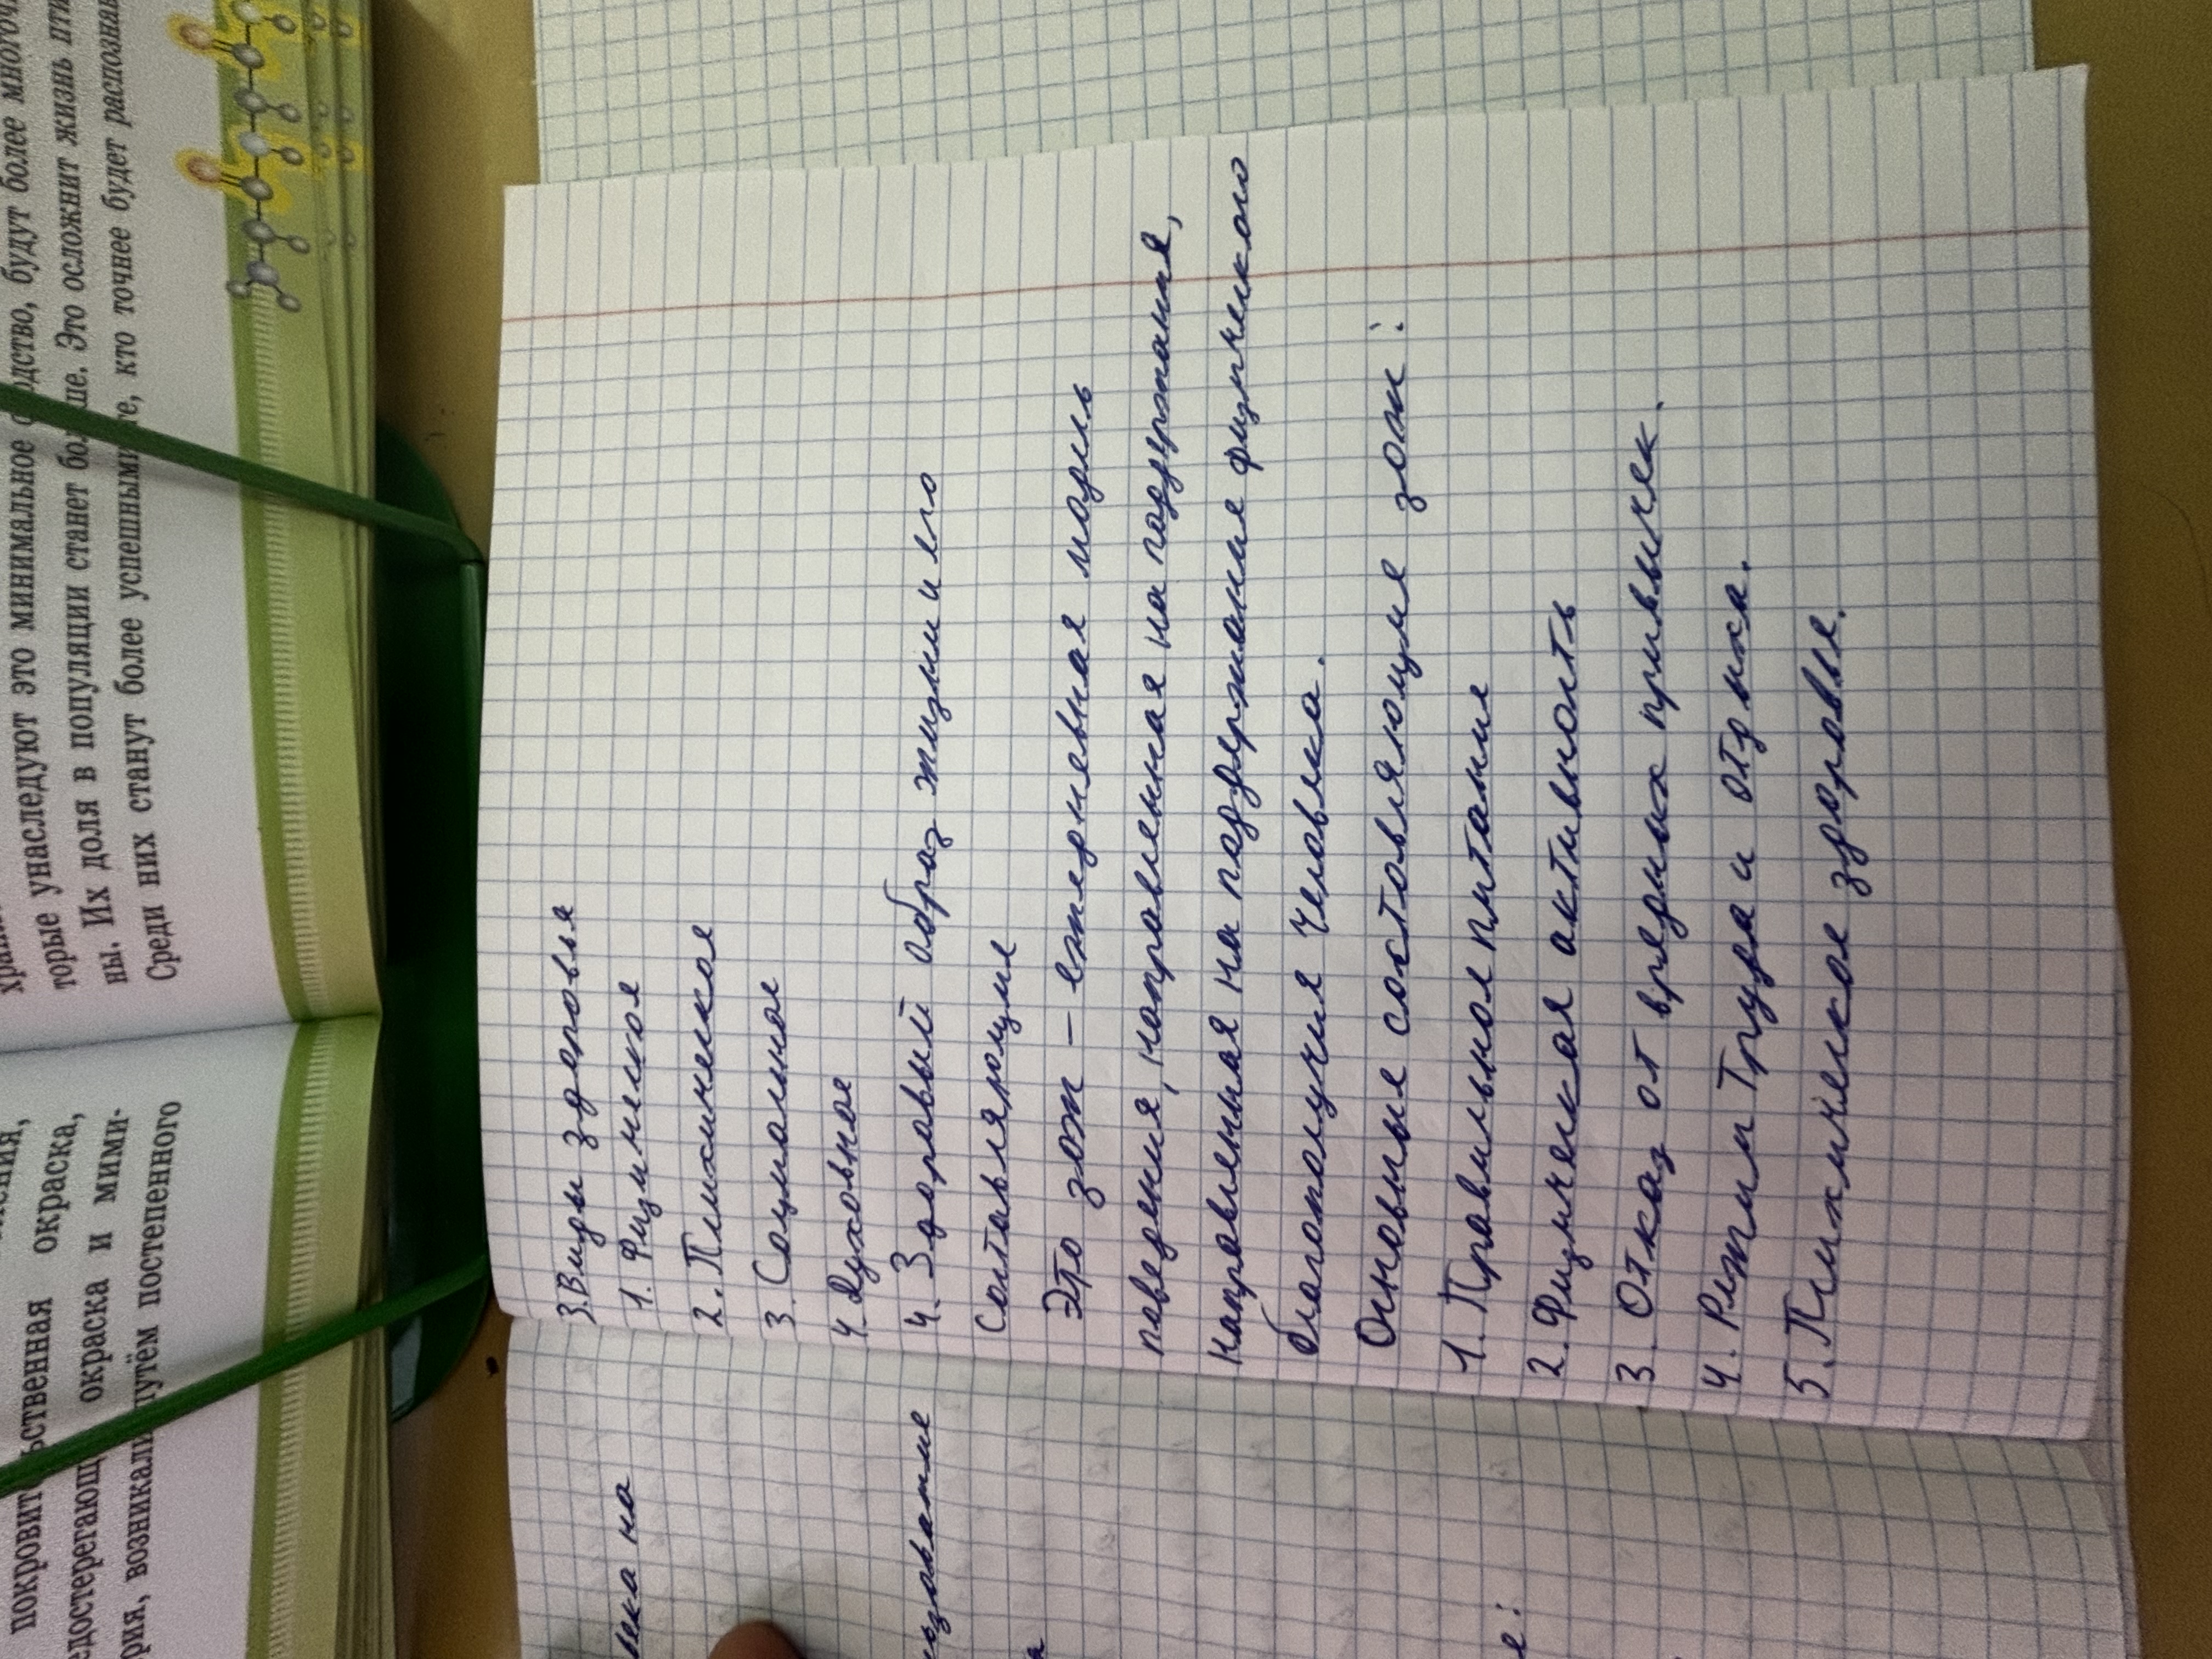 торые унаследуют это минимальное
ны. Их доля в популяции станет
Среди них станут более успешными
будут более
ше. Это осложнит жизнь
кто точнее будет
окраска,
окраска и мими-
возникали путём постепенного
3. Виды здоровья
1. Физическое
2. Психическое
3. Социальное
4. Духовное
4. Здоровый образ жизни и его
составляющие
Это зож – ежедневная модель
поведения, направленная на поддержания,
направленная на поддержание физического
благополучия человека.
Основные составляющие зож:
1. Правильное питание
2. Физическая активность
3. Отказ от вредных привычек.
4. Режим Труда и отдыха.
5. Психическое здоровье.
на